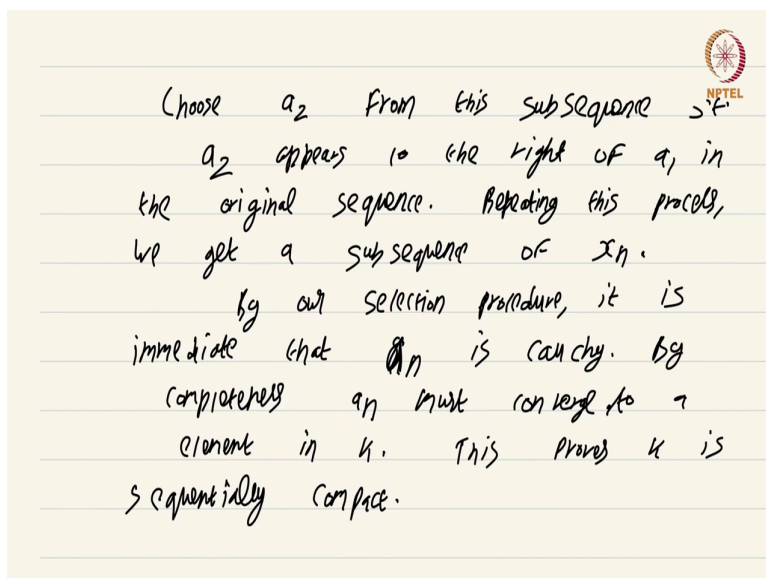 NPTEL
Choose a₂ from this subsequence s.t.
a₂ appears to the right of a₁ in
the original sequence. Repeating this process,
we get a subsequence of xₙ.
By our selection procedure, it is
immediate that aₙ is cauchy. By
completeness aₙ must converge to a
element in K. This proves K is
sequentially compact.